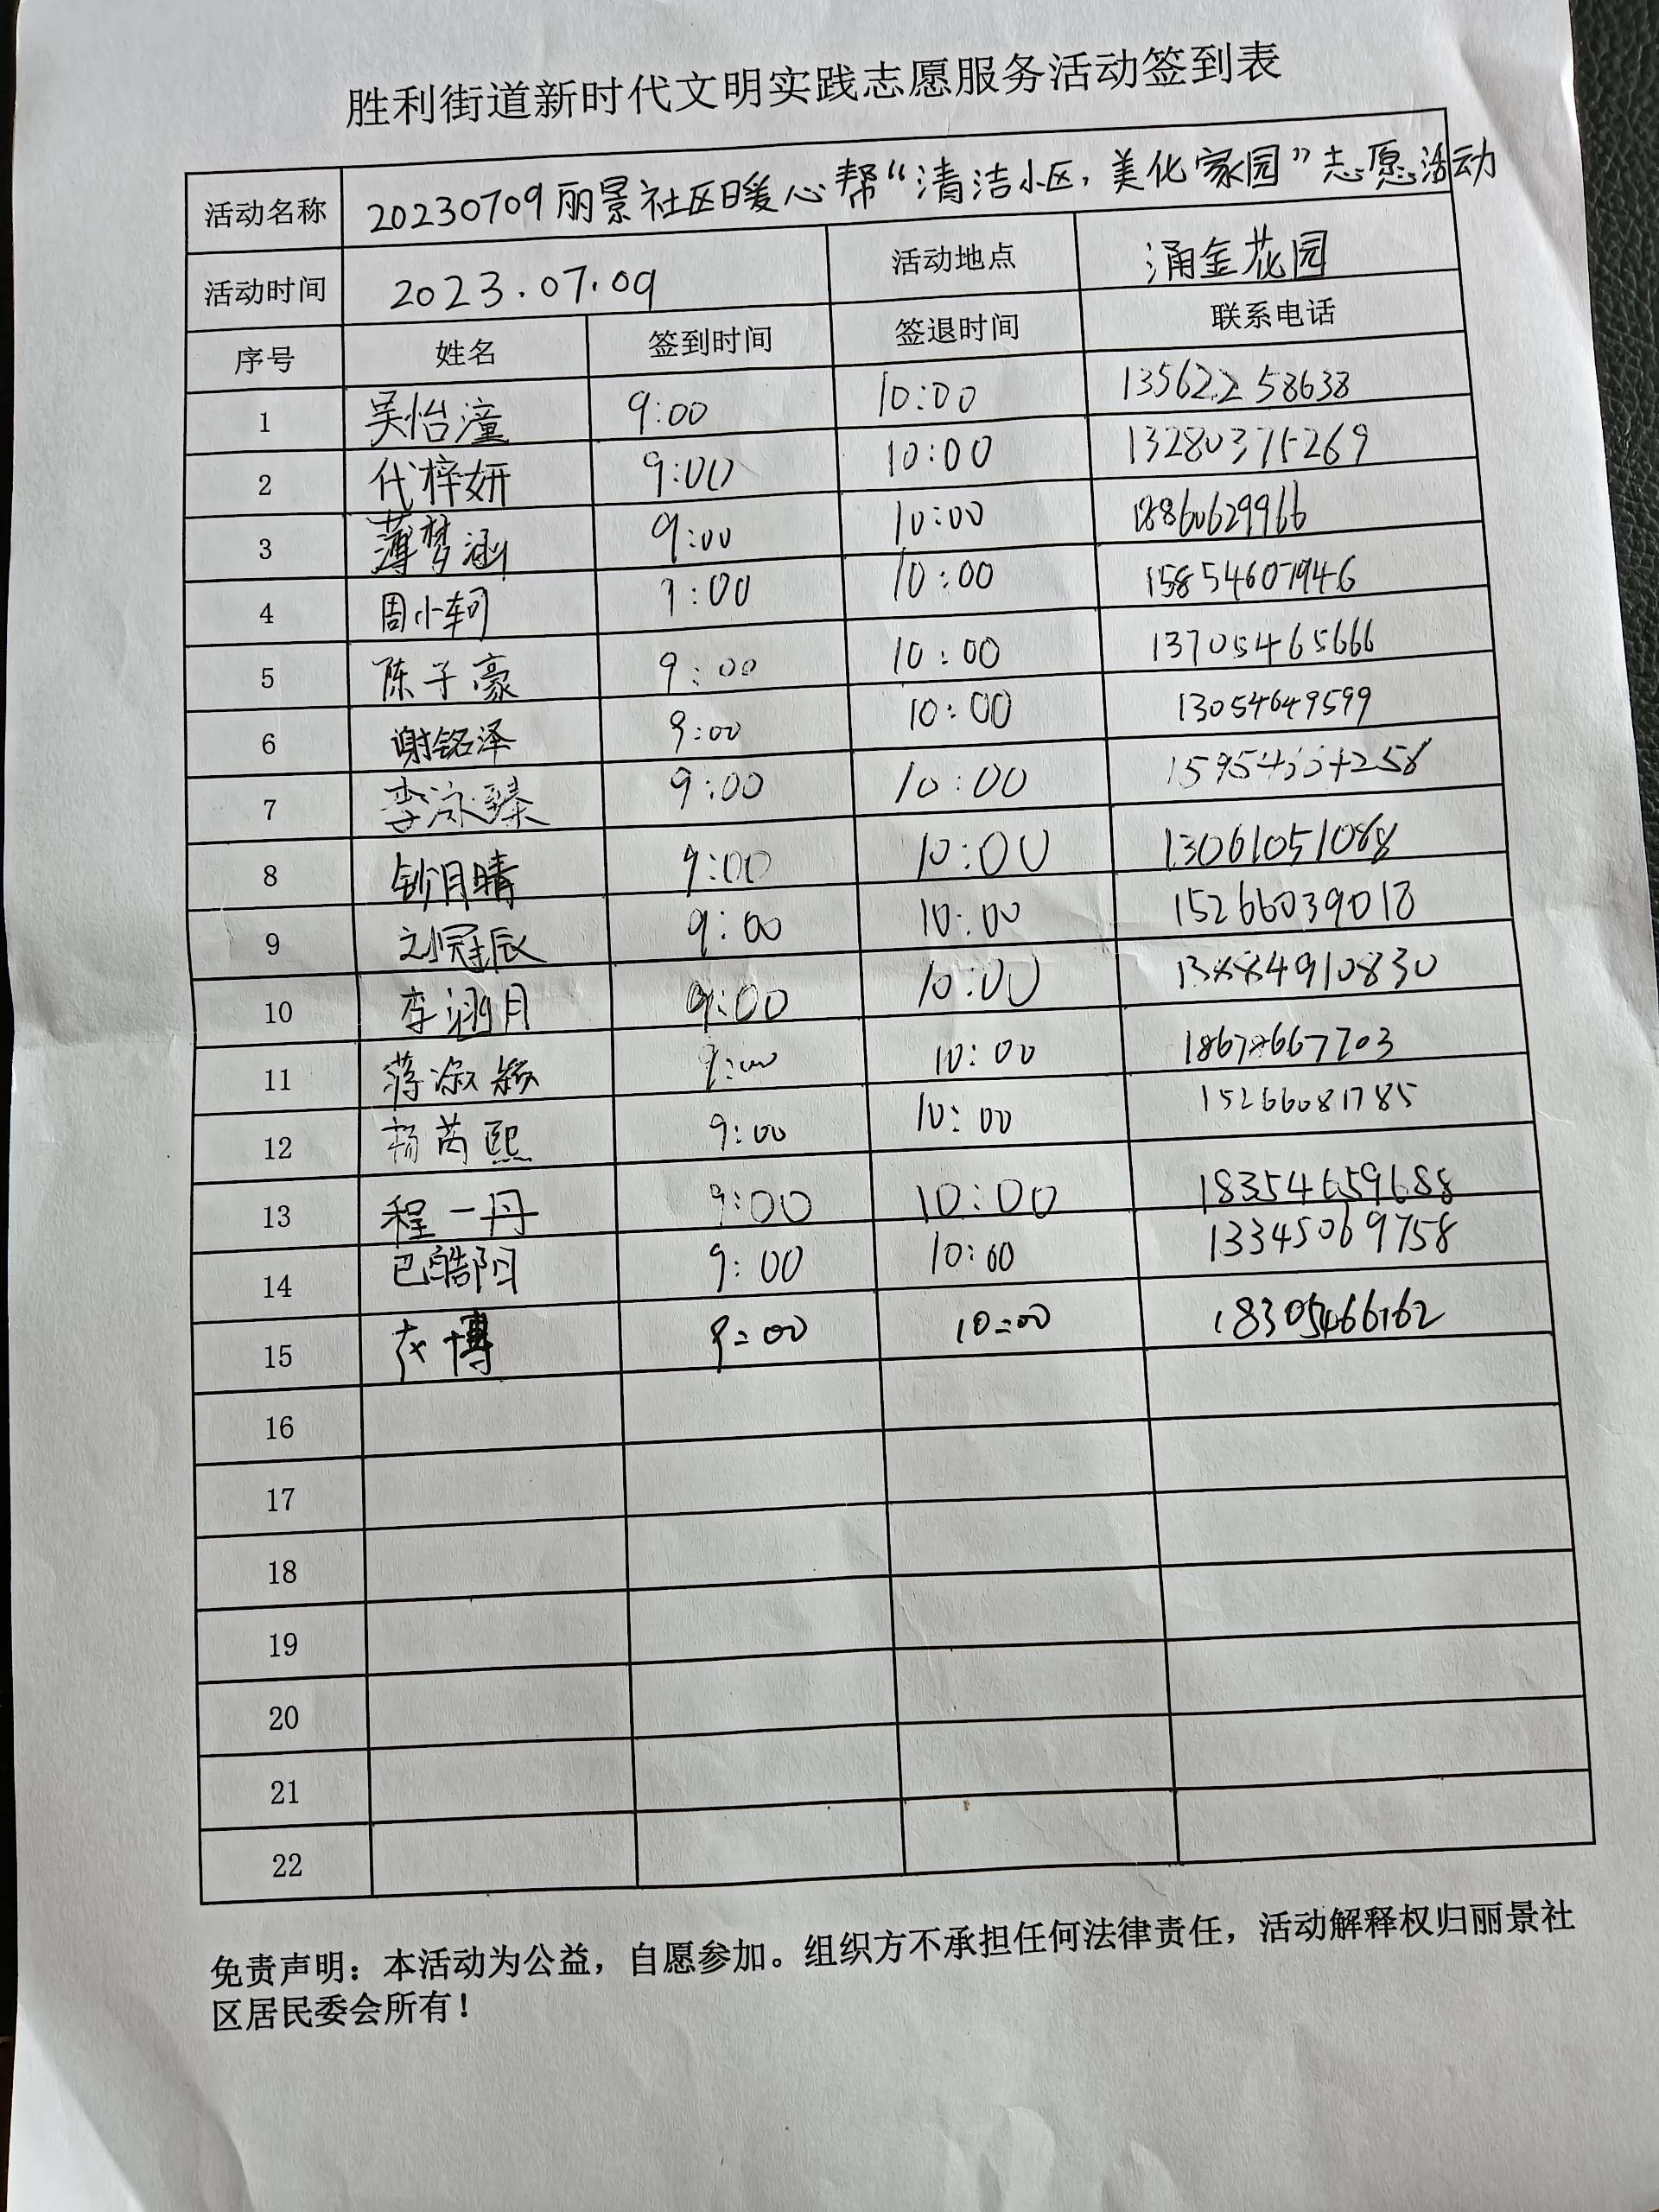 胜利街道新时代文明实践志愿服务活动签到表
活动名称 20230709丽景社区暖心帮“清洁小区，美化家园”志愿活动
活动时间 2023.07.09 活动地点 涌金花园
序号 姓名 签到时间 签退时间 联系电话
1 吴怡潼 9:00 10:00 13562258638
2 代梓妍 9:00 10:00 13280375269
3 薄梦涵 9:00 10:00 18860629966
4 周小轲 9:00 10:00 15854607946
5 陈子豪 9:00 10:00 13705465666
6 谢铭泽 9:00 10:00 13054649599
7 李泳臻 9:00 10:00
8 钞月晴 9:00 10:00 13061051088
9 刘冠辰 9:00 10:00 15266039018
10 李翊月 9:00 10:00 13884910830
11 蒋淑 9:00 10:00 18678667703
12 杨芮熙 9:00 10:00 15266081785
13 程一丹 9:00 10:00 18354659688
14 巴皓阳 9:00 10:00 13345069758
15 博 9:00 10:00 18305466162
16
17
18
19
20
21
22
免责声明：本活动为公益，自愿参加。组织方不承担任何法律责任，活动解释权归丽景社
区居民委会所有！